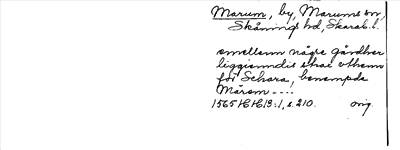 Marum, by, Marums sn,
Skånings hd, Skarab. l.
emellernn någre gårdher
liggienndis strax vthenn
för Schara, benempde
Mårem ----
1565 HH 13:1, s. 210. orig.